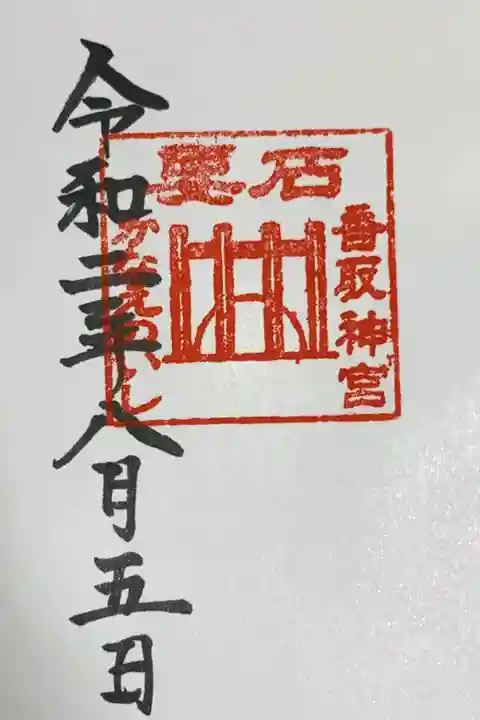 香取神宮
要石
かなめいし
令和二年八月五日